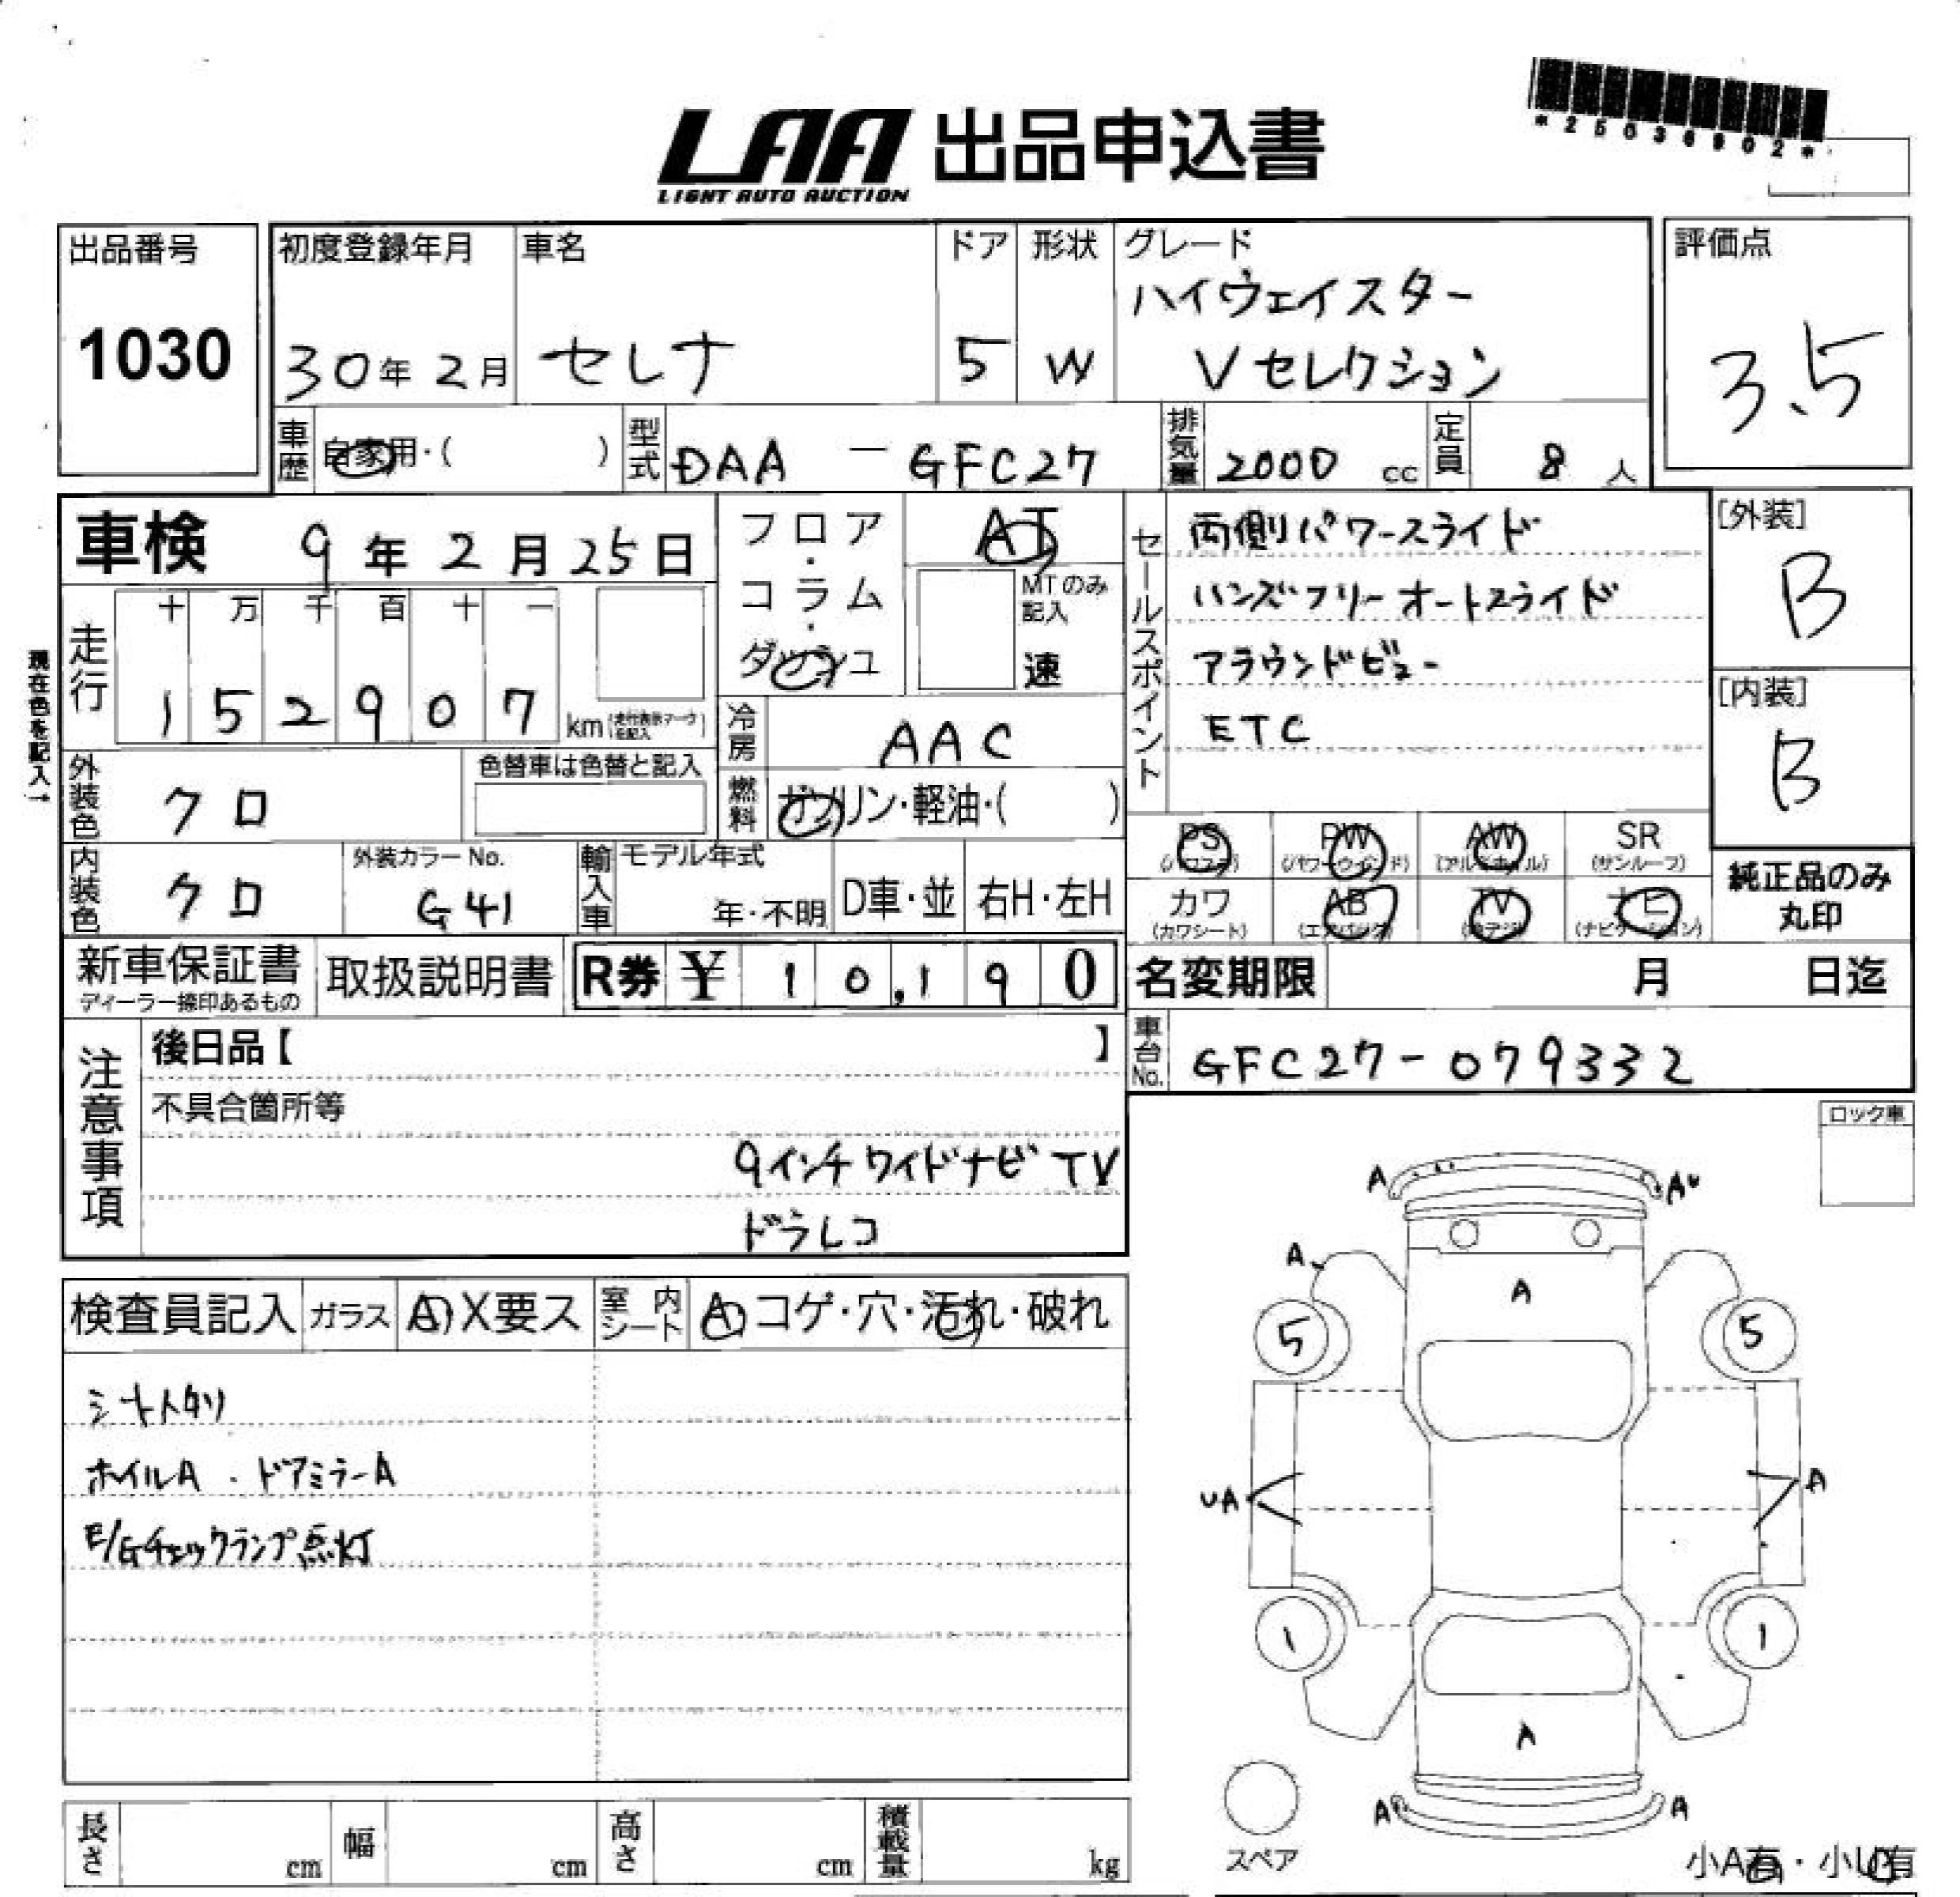 *25036902*
LAA 出品申込書
LIGHT AUTO AUCTION
出品番号
1030
初度登録年月
30年 2月
車名
セレナ
ドア
5
形状
W
グレード
ハイウェイスター
Vセレクション
評価点
3.5
車歴
自家用・( )
型式
DAA - GFC27
排気量
2000 cc
定員
8 人
車検 9年 2月 25日
フロア・コラム・ダッシュ
AT
MTのみ記入
速
セールスポイント
両側パワースライド
ハンズフリーオートスライド
アラウンドビュー
ETC
[外装]
B
[内装]
B
現在色を記入→
走行
十 万 千 百 十 一
1 5 2 9 0 7 km (走行表示マークを記入)
冷房
AAC
外装色
クロ
色替車は色替と記入
燃料
ガソリン・軽油・( )
PS (パワステ)
PW (パワーウインド)
AW (アルミホイル)
SR (サンルーフ)
カワ (カワシート)
AB (エアバッグ)
TV (地デジ)
ナビ (ナビゲーション)
純正品のみ
丸印
内装色
クロ
外装カラーNo.
G41
輸入車
モデル年式
年・不明
D車・並
右H・左H
新車保証書
ディーラー捺印あるもの
取扱説明書
R券 ¥ 10,190
名変期限 月 日迄
車台No.
GFC27-079332
注意事項
後日品【 】
不具合箇所等
9インチワイドナビ TV
ドラレコ
ロック車
検査員記入
ガラス
A X要ス
室内シート
A コゲ・穴・汚れ・破れ
シートヘタリ
ホイルA . ドアミラーA
E/Gチェックランプ点灯
A
A
A
A
5
5
UA
A
1
1
A
A
A
スペア
小A有・小U有
長さ cm
幅 cm
高さ cm
積載量 kg